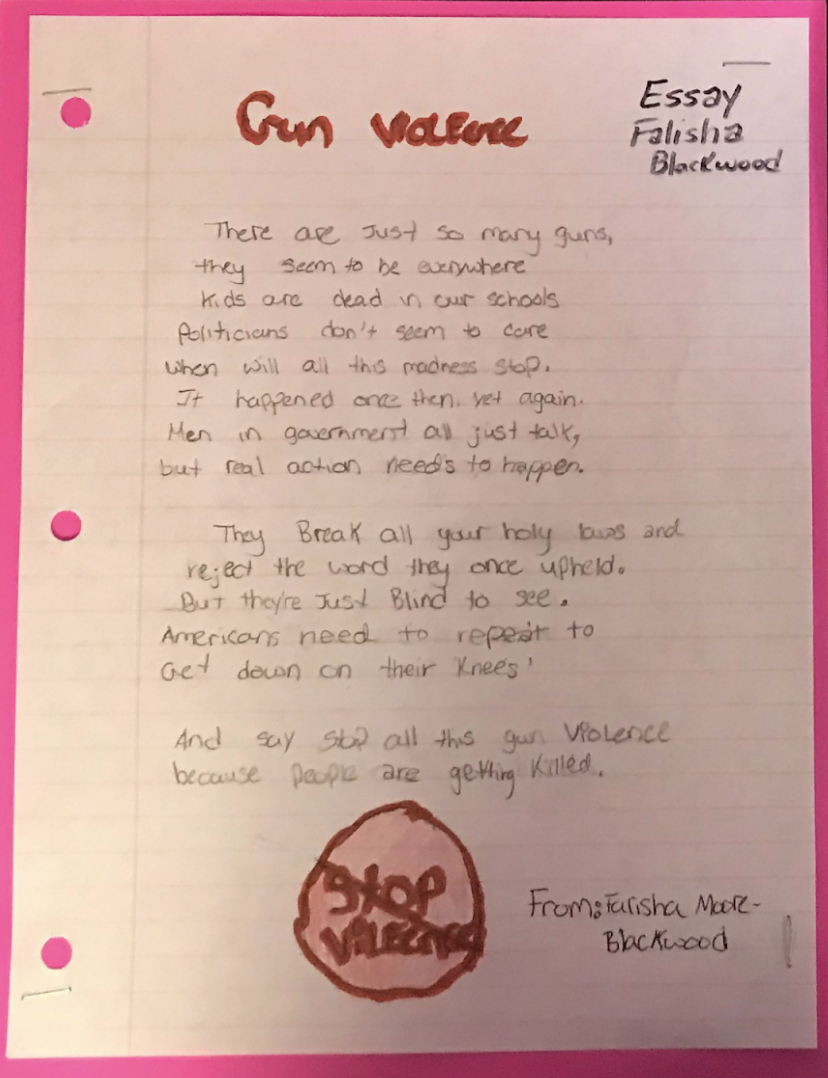 Gun VIOLENCE
Essay
Falisha
Blackwood
There are Just so many guns,
they seem to be everywhere
Kids are dead in our schools
Politicians don't seem to care
when will all this madness stop.
It happened once then. yet again.
Men in government all just talk,
but real action needs to happen.
They Break all your holy laws and
reject the word they once upheld.
But they're Just Blind to see.
Americans need to repeat to
Get down on their Knees'
And say stop all this gun Violence
because people are getting Killed.
STOP
From: Farisha Moore-
Blackwood